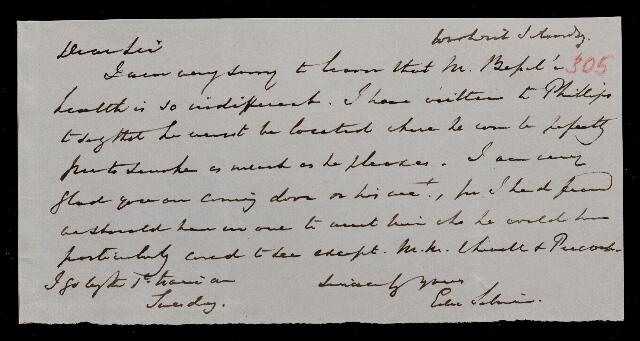 Dear Sir
I am very sorry to learn that M. Bepel's 305
health is so indifferent. I have written to Phillips
to say that he must be located where he can be perfectly
free to smoke as much as he pleases. I am very
glad you are coming down on his acct., for I had feared
we should have no one to meet him who he would have
particularly cared to see except M.M.
I go by the 1st train on
Tuesday.
Sincerely yours